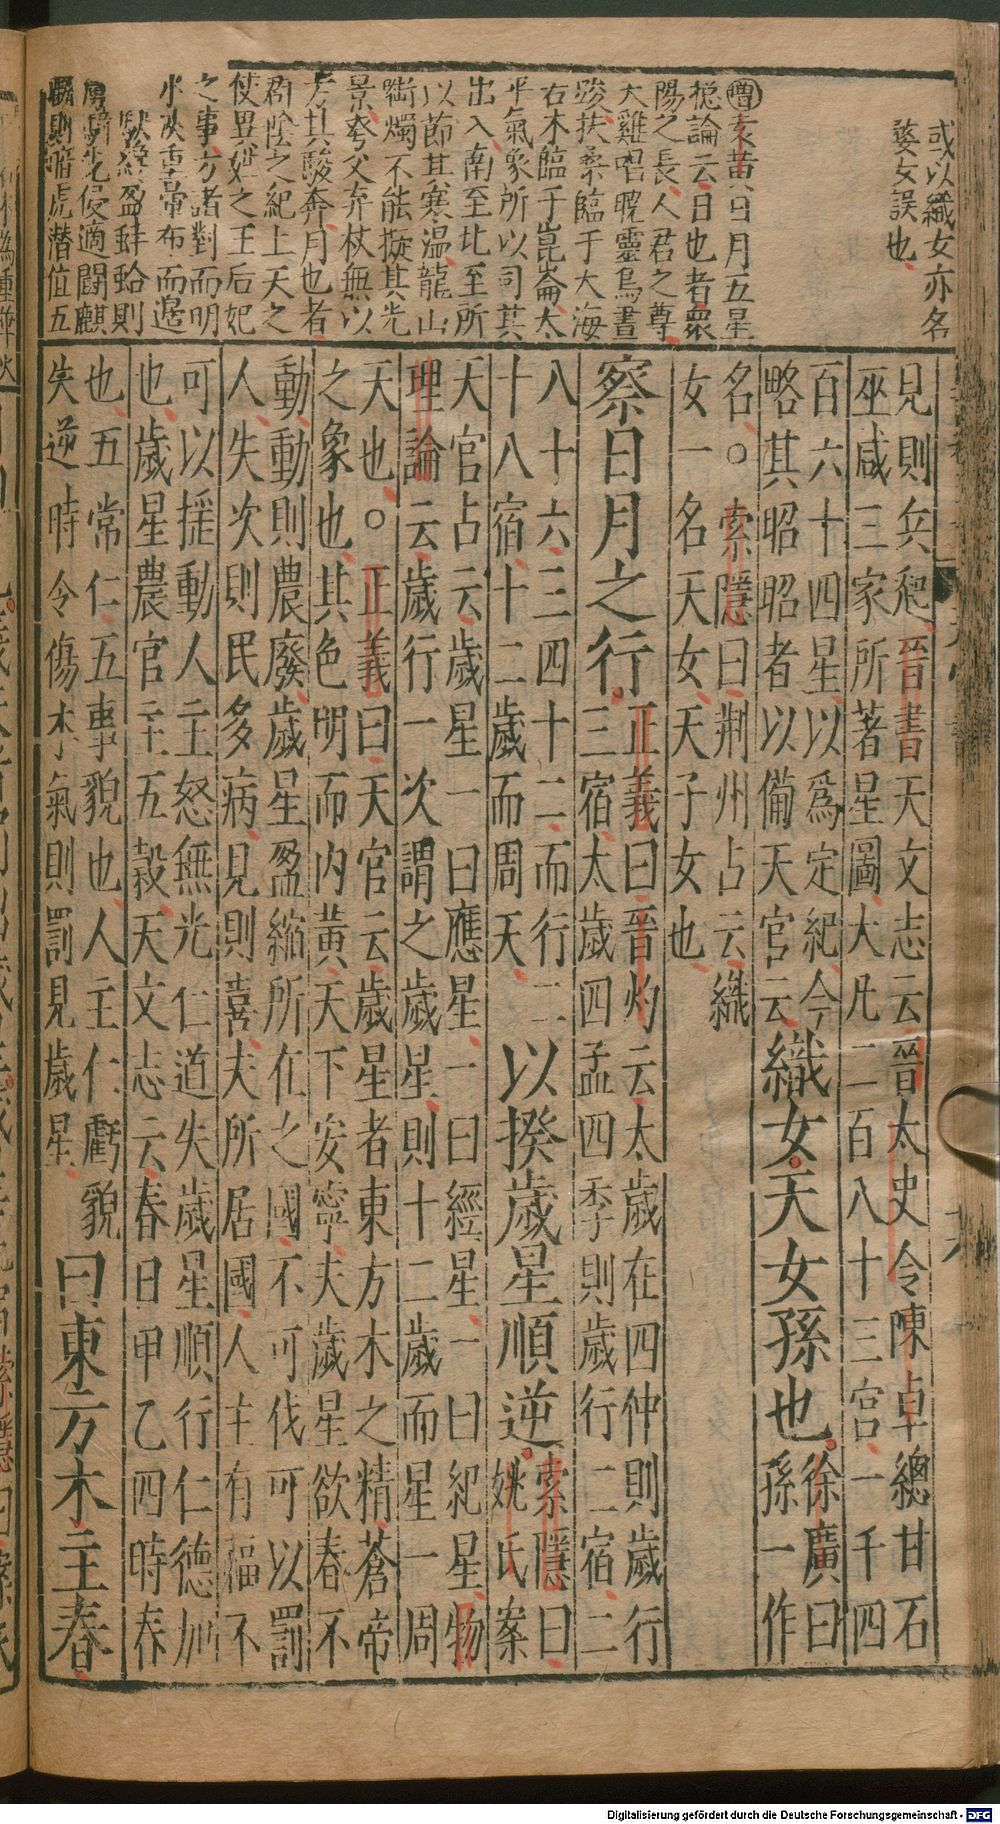 或以織女亦名
婺女誤也
增袁黃曰日月五星
總論云日也者衆
陽之長人君之尊
天雞唱曉靈烏晝
踆扶桑臨于大海
右木臨于崑崙太
平氣象所以司其
出入南至北至所
以節其寒溫龍山
銜燭不能擬其光
景夸父弃杖無以
方其駿奔月也者
群陰之紀上天之
使異姓之王后妃
之事方諸對而明
水浹重暈布而邊
缺盈蚌蛤則
侵適闘麒
則暗虎潛值五
見則兵起晉書天文志云晉太史令陳卓總甘石
巫咸三家所著星圖大凡二百八十三官一千四
百六十四星以爲定紀今
略其昭昭者以備天官云
織女天女孫也
徐廣曰
孫一作
名○索隱曰荆州占云織
女一名天女天子女也
察日月之行
正義曰晉灼云太歲在四仲則歲行
三宿太歲四孟四季則歲行二宿二
八十六三四十二而行二
十八宿十二歲而周天
以揆歲星順逆
索隱曰
姚氏案
天官占云歲星一曰應星一曰經星一曰紀星物
理論云歲行一次謂之歲星則十二歲而星一周
天也○正義曰天官云歲星者東方木之精蒼帝
之象也其色明而內黃天下安寧夫歲星欲春不
動動則農廢歲星盈縮所在之國不可伐可以罰
人失次則民多病見則喜其所居國人主有福不
可以摇動人主怒無光仁道失歲星順行仁德加
也歲星農官主五穀天文志云春日甲乙四時春
也五常仁五事貌也人主仁虧貌
失逆時令傷木氣則罰見歲星
曰東方木主春
Digitalisierung gefördert durch die Deutsche Forschungsgemeinschaft - DFG